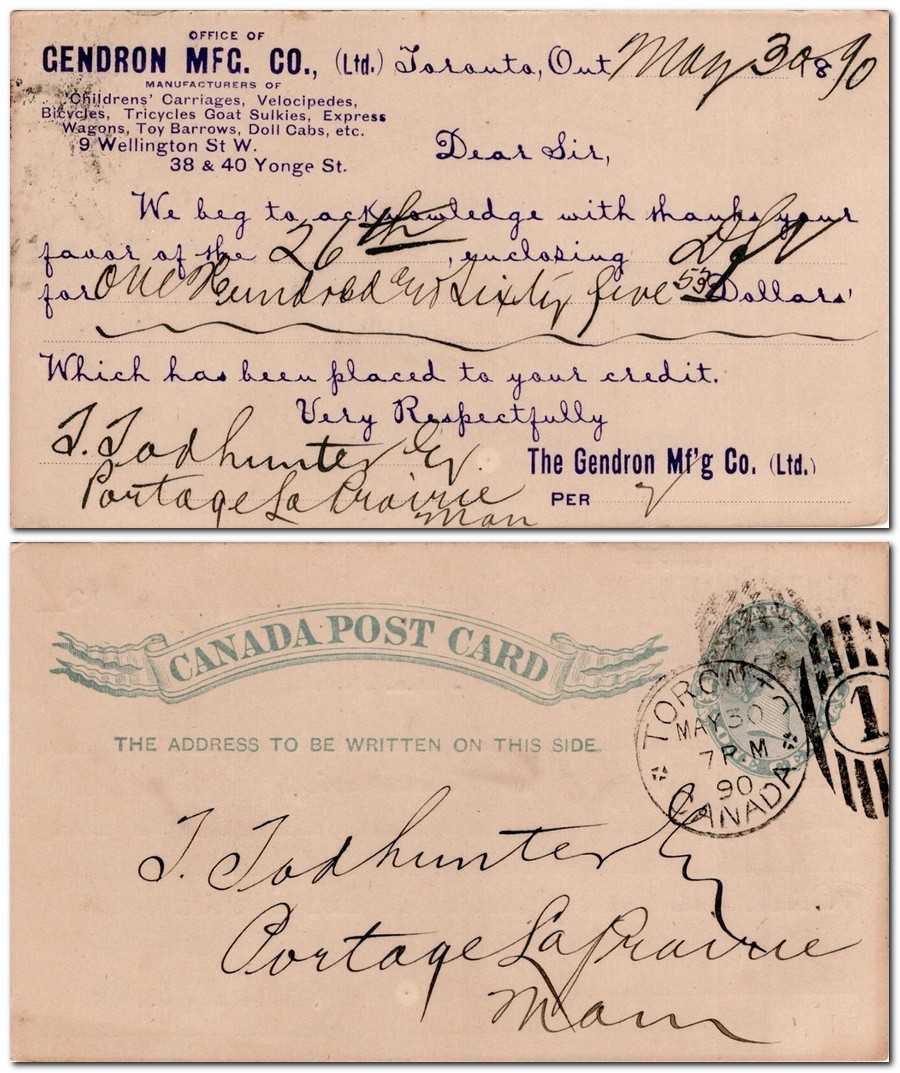 OFFICE OF
GENDRON MFG. CO., (Ltd.) Toronto, Ont May 30 1890
MANUFACTURERS OF
Childrens' Carriages, Velocipedes,
Bicycles, Tricycles Goat Sulkies, Express
Wagons, Toy Barrows, Doll Cabs, etc.
9 Wellington St W.
38 & 40 Yonge St.
Dear Sir,
We beg to acknowledge with thanks your
favor of the 26th, enclosing Dft
for One Hundred & Sixty five 53 Dollars
Which has been placed to your credit.
Very Respectfully
T. Todhunter Eq.
The Gendron Mf'g Co. (Ltd.)
Portage La Prairie
PER
Man
CANADA POST CARD
THE ADDRESS TO BE WRITTEN ON THIS SIDE.
TORONTO
MAY 30
7 PM
90
CANADA
1
T. Todhunter Eq
Portage La Prairie
Man